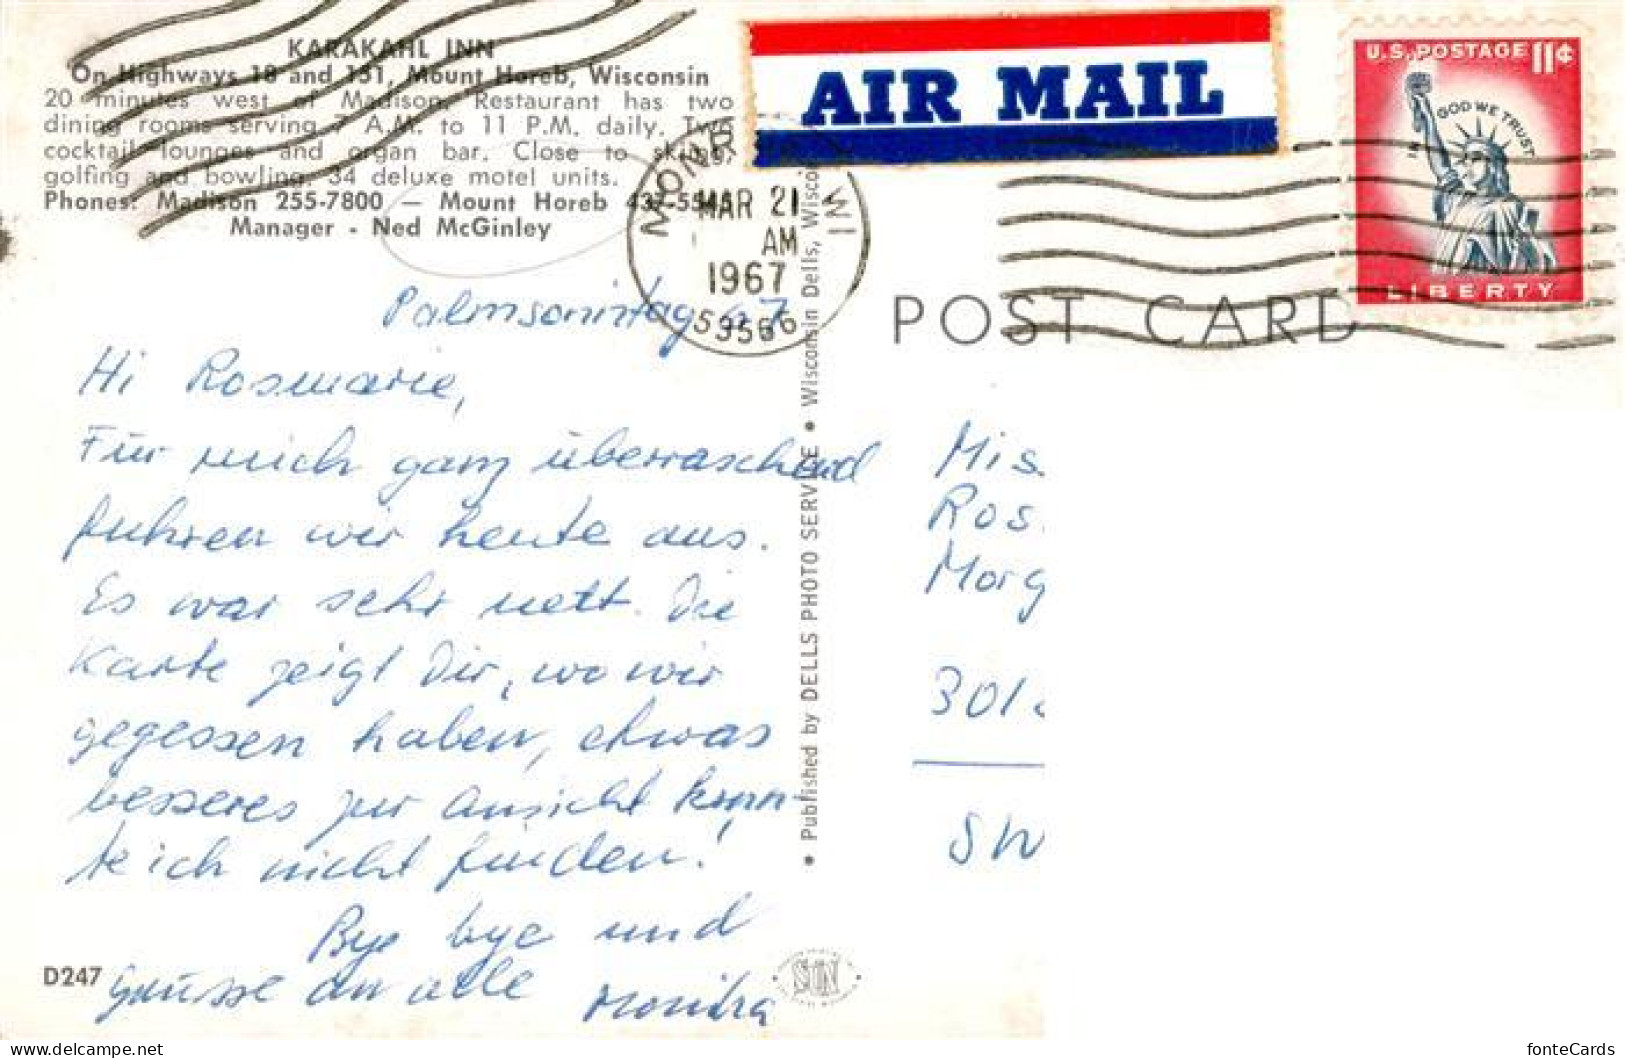 KARAKAHL INN
On Highways 18 and 151, Mount Horeb, Wisconsin
20 minutes west of Madison. Restaurant has two
dining rooms serving 7 A.M. to 11 P.M. daily. Two
cocktail lounges and organ bar. Close to skiing,
golfing and bowling. 34 deluxe motel units.
Phones: Madison 255-7800 — Mount Horeb 437-5545
Manager - Ned McGinley
AIR MAIL
U.S. POSTAGE 11¢
IN GOD WE TRUST
LIBERTY
MAR 21
AM
1967
53566
POST CARD
Palmsonntag 67
Hi Rosmarie,
Für mich ganz überraschend
fuhren wir heute aus.
Es war sehr nett. Die
Karte zeigt Dir, wo wir
gegessen haben, etwas
besseres zur Ansicht konn-
te ich nicht finden!
Bye bye und
Grüsse an alle Monika
Mis
Ros
Morg
301
SW
• Published by DELLS PHOTO SERVICE • Wisconsin Dells, Wisco
D247
SUN
delcampe.net
fonteCards